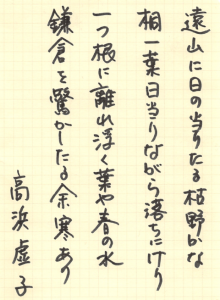 遠山に日の当りたる枯野かな
桐一葉日当りながら落ちにけり
一つ根に離れ浮く葉や春の水
鎌倉を驚かしたる余寒あり
高浜虚子